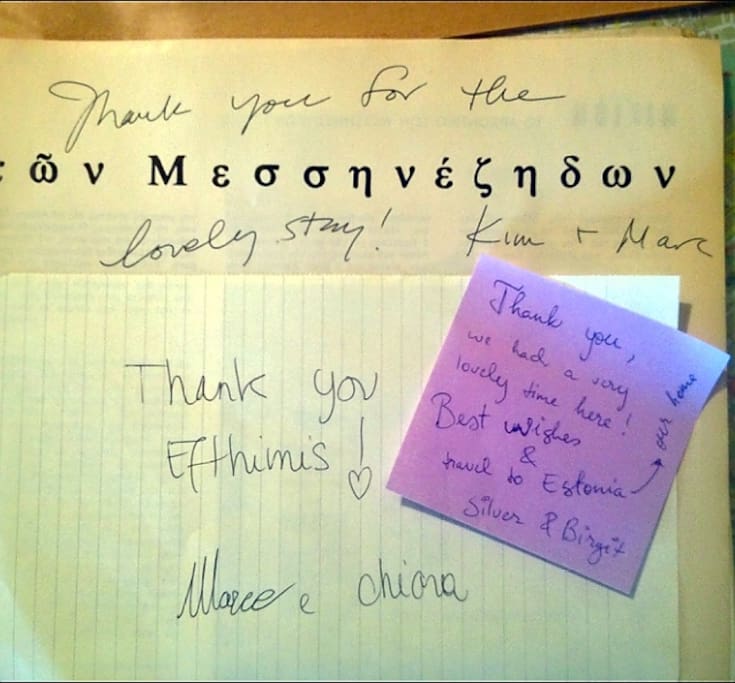 Thank you for the
τῶν Μεσσηνέζηδων
lovely stay! Kim + Marc
Thank you
Efthimis!
Marco e chiara
Thank you,
we had a very
lovely time here!
Best wishes
&
travel to Estonia
our home
Silver & Birgit